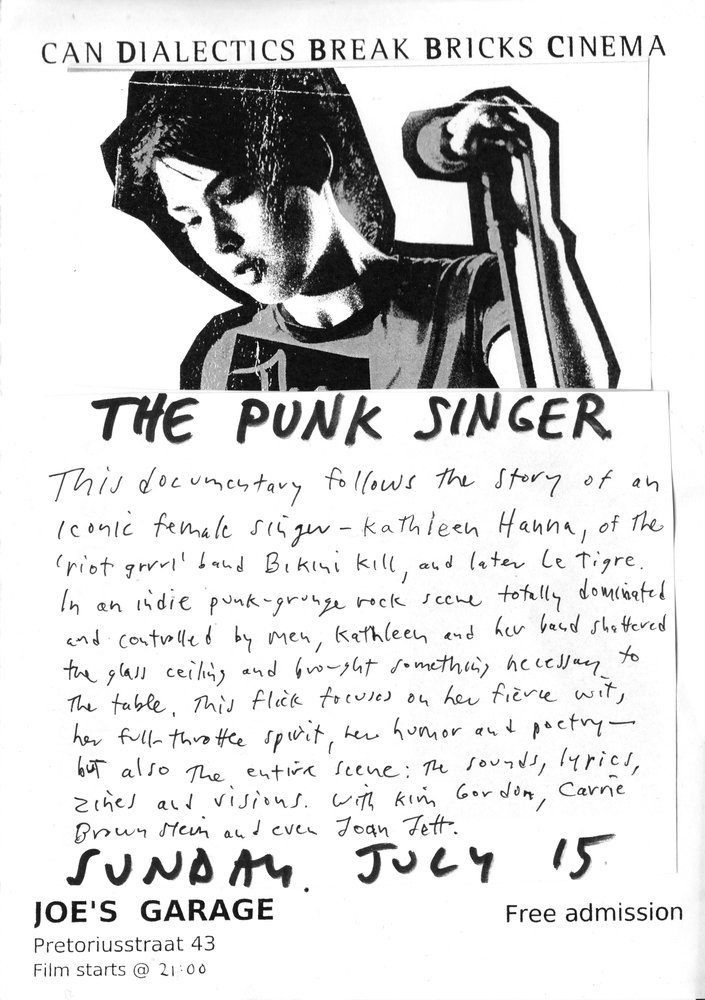 CAN DIALECTICS BREAK BRICKS CINEMA
THE PUNK SINGER
This documentary follows the story of an
iconic female singer – Kathleen Hanna, of the
'riot grrrl' band Bikini Kill, and later Le Tigre.
In an indie punk-grunge rock scene totally dominated
and controlled by men, Kathleen and her band shattered
the glass ceiling and brought something necessary to
the table. This flick focuses on her fierce wit,
her full-throttle spirit, her humor and poetry—
but also the entire scene: the sounds, lyrics,
zines and visions. With Kim Gordon, Carrie
Brownstein and even Joan Jett.
SUNDAY. JULY 15
JOE'S GARAGE
Free admission
Pretoriusstraat 43
Film starts @ 21:00